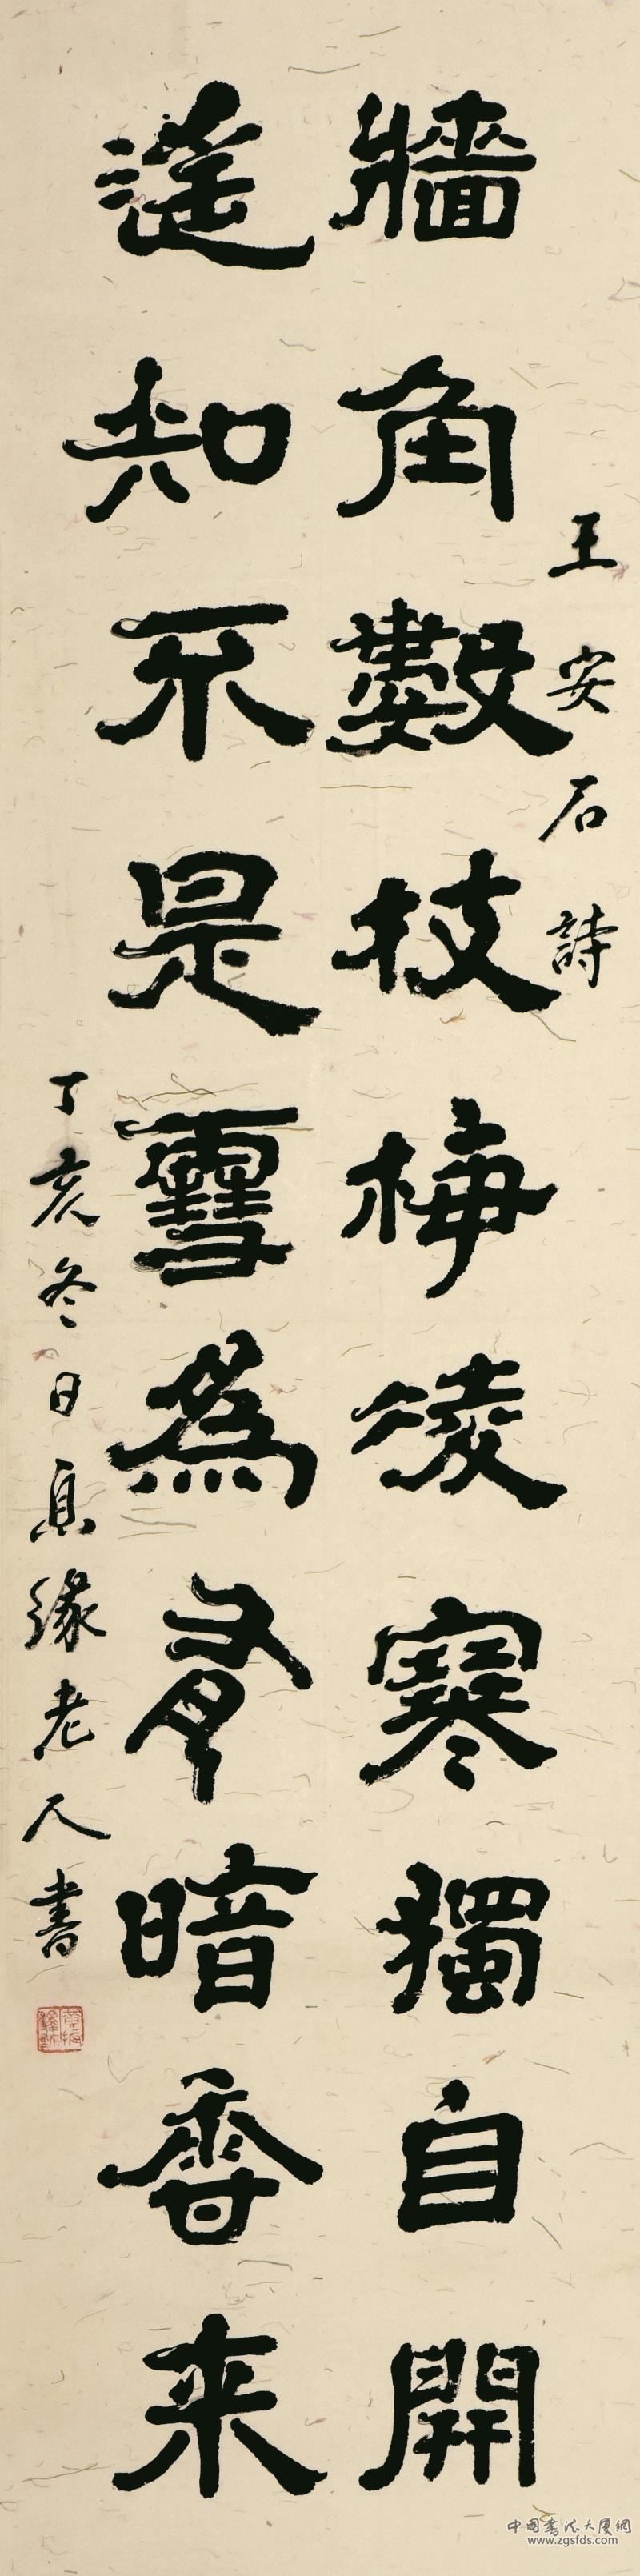 牆角數枝梅凌寒獨自開
王安石詩
遙知不是雪為有暗香来
丁亥冬日息緣老人書
中國书法大廈網
www.zgsfds.com